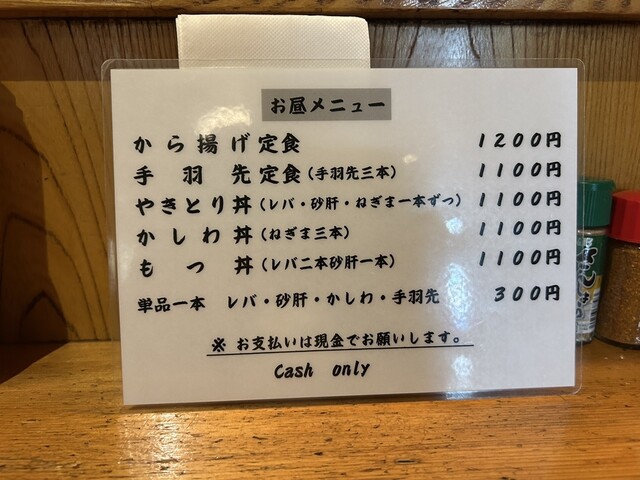 お昼メニュー
から揚げ定食 1200円
手羽先定食(手羽先三本) 1100円
やきとり丼(レバ・砂肝・ねぎま一本ずつ) 1100円
かしわ丼(ねぎま三本) 1100円
もつ丼(レバ二本砂肝一本) 1100円
単品一本 レバ・砂肝・かしわ・手羽先 300円
※ お支払いは現金でお願いします。
Cash only